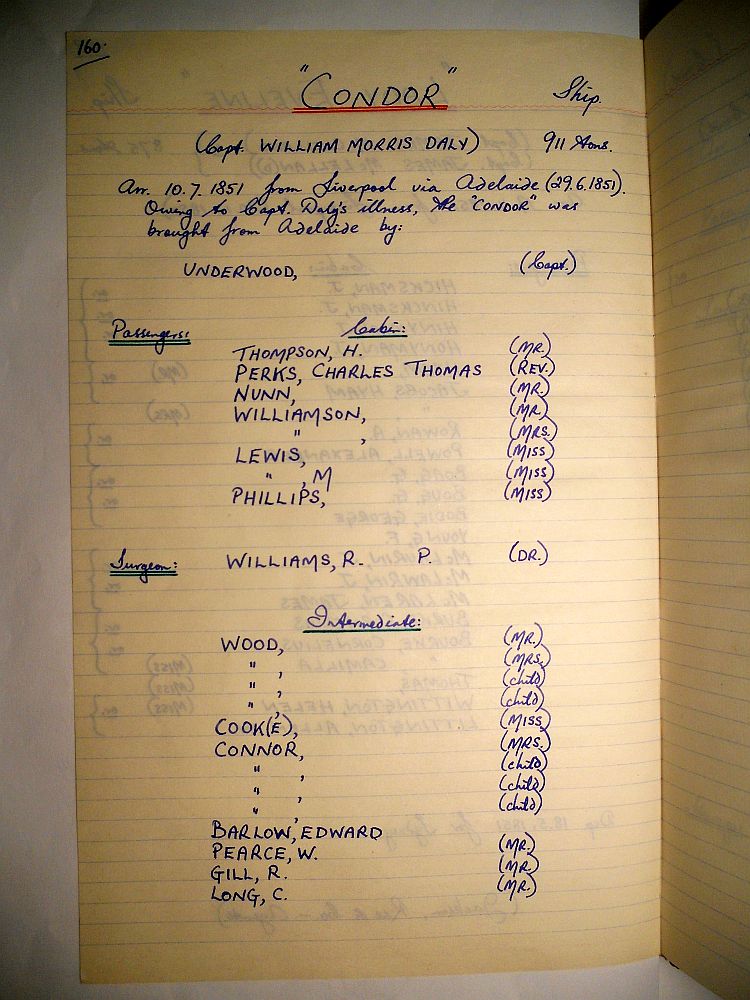 160.
"CONDOR" Ship.
(Capt. WILLIAM MORRIS DALY) 911 tons.
Arr. 10.7.1851 from Liverpool via Adelaide (29.6.1851).
Owing to Capt. Daly's illness, the "CONDOR" was
brought from Adelaide by:
UNDERWOOD, (Capt.)
Passengers: Cabin:
THOMPSON, H. (MR.)
PERKS, CHARLES THOMAS (REV.)
NUNN, (MR.)
WILLIAMSON, (MR.)
" , (MRS.)
LEWIS, (MISS)
" , M (MISS)
PHILLIPS, (MISS)
Surgeon: WILLIAMS, R. P. (DR.)
Intermediate:
WOOD, (MR.)
" , (MRS.)
" , (child)
" , (child)
COOK(E), (MISS)
CONNOR, (MRS.)
" , (child)
" , (child)
" , (child)
BARLOW, EDWARD
PEARCE, W. (MR.)
GILL, R. (MR.)
LONG, C. (MR.)